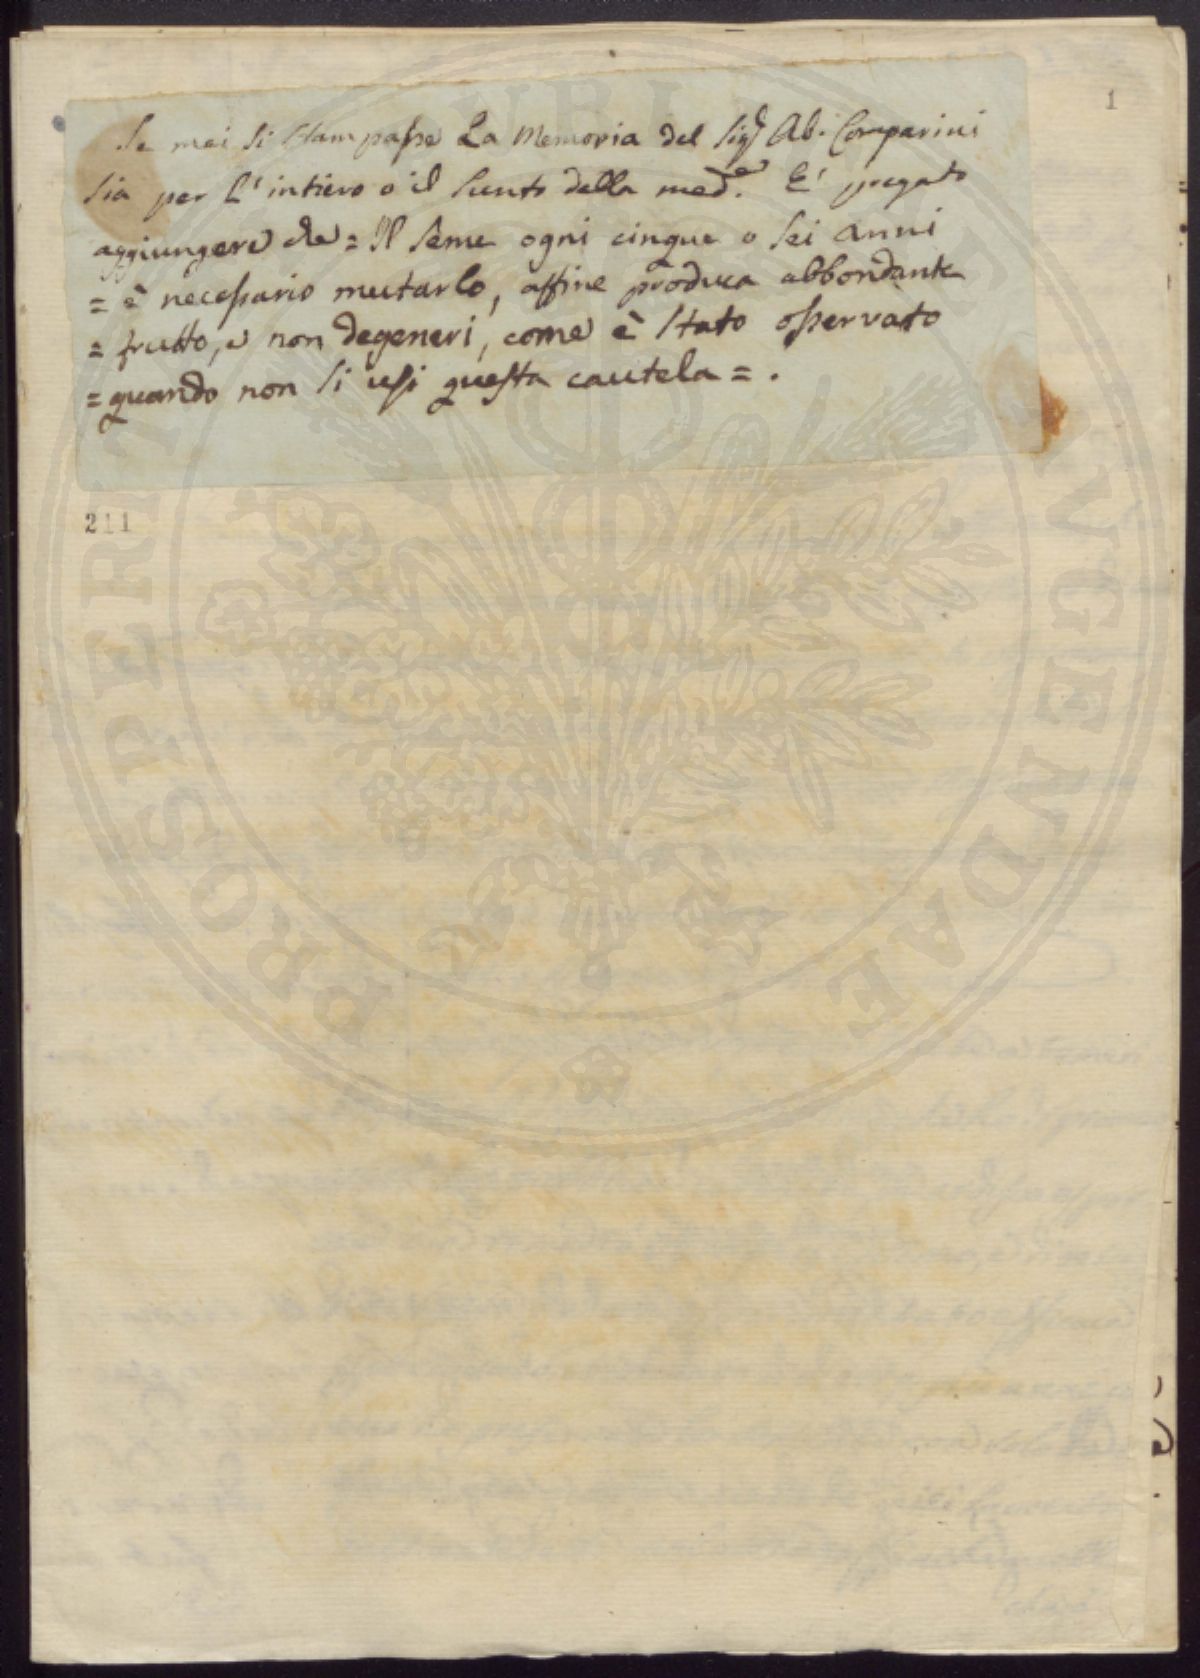 1
Se mai si stampasse La Memoria del Sigr Ab. Comparini
sia per L'intiero o il sunto della mede. E' pregato
aggiungere che = Il seme ogni cinque o sei anni
= è necessario mutarlo, affine produca abbondante
= frutto, e non degeneri, come è stato osservato
= quando non si usi questa cautela = .
211
PROSPERITATI PUBLICAE AUGENDAE